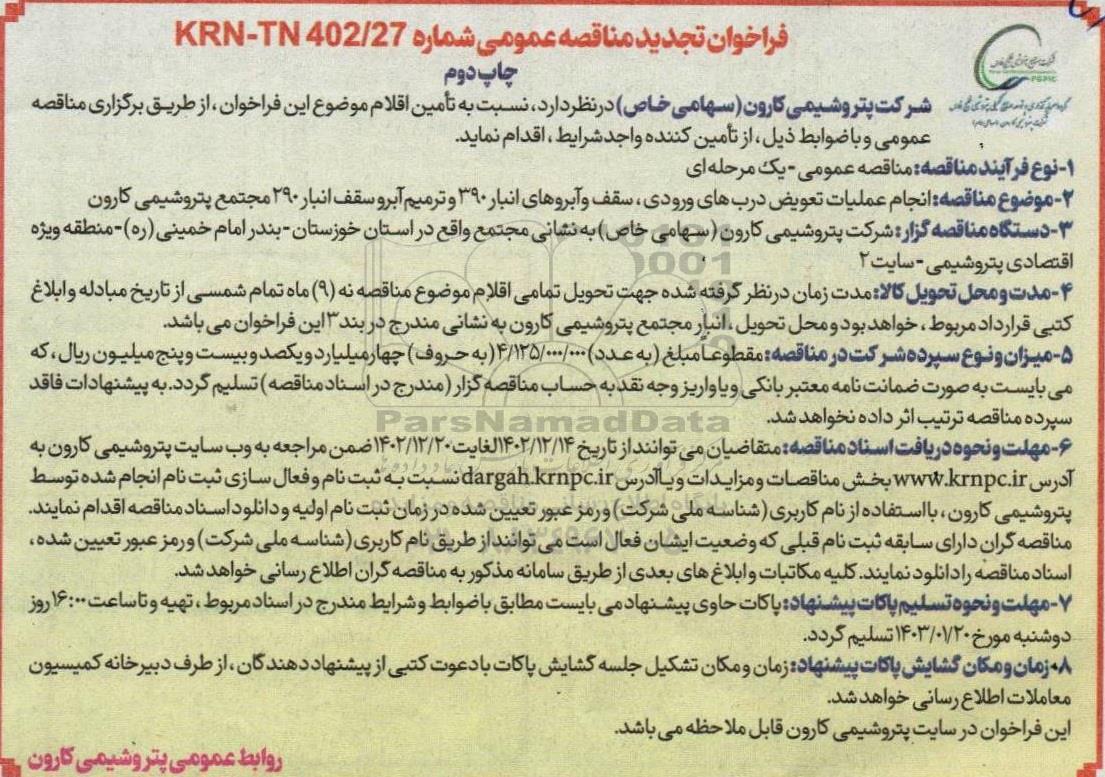 فراخوان تجدید مناقصه عمومی شماره KRN-TN 402/27
چاپ دوم
PGPIC
شرکت پتروشیمی کارون (سهامی خاص) در نظر دارد، نسبت به تأمین اقلام موضوع این فراخوان، از طریق برگزاری مناقصه
عمومی و با ضوابط ذیل، از تأمین کننده واجد شرایط، اقدام نماید.
۱-نوع فرآیند مناقصه: مناقصه عمومی - یک مرحله ای
۲-موضوع مناقصه: انجام عملیات تعویض درب های ورودی، سقف و آبروهای انبار ۳۹۰ و ترمیم آبرو سقف انبار ۲۹۰ مجتمع پتروشیمی کارون
۳-دستگاه مناقصه گزار: شرکت پتروشیمی کارون (سهامی خاص) به نشانی مجتمع واقع در استان خوزستان - بندر امام خمینی (ره) - منطقه ویژه
اقتصادی پتروشیمی - سایت ۲
۴-مدت و محل تحویل کالا: مدت زمان در نظر گرفته شده جهت تحویل تمامی اقلام موضوع مناقصه نه (۹) ماه تمام شمسی از تاریخ مبادله و ابلاغ
کتبی قرارداد مربوط، خواهد بود و محل تحویل، انبار مجتمع پتروشیمی کارون به نشانی مندرج در بند ۳ این فراخوان می باشد.
۵-میزان و نوع سپرده شرکت در مناقصه: مقطوعاً مبلغ (به عدد) ۴/۱۲۵/۰۰۰/۰۰۰ (به حروف) چهار میلیارد و یکصد و بیست و پنج میلیون ریال، که
می بایست به صورت ضمانت نامه معتبر بانکی و یا واریز وجه نقد به حساب مناقصه گزار (مندرج در اسناد مناقصه) تسلیم گردد. به پیشنهادات فاقد
سپرده مناقصه ترتیب اثر داده نخواهد شد.
ParsNamadData
۶-مهلت و نحوه دریافت اسناد مناقصه: متقاضیان می توانند از تاریخ ۱۴۰۲/۱۲/۱۴ لغایت ۱۴۰۲/۱۲/۲۰ ضمن مراجعه به وب سایت پتروشیمی کارون به
آدرس www.krnpc.ir بخش مناقصات و مزایدات و یا آدرس dargah.krnpc.ir نسبت به ثبت نام و فعال سازی ثبت نام انجام شده توسط
پتروشیمی کارون، با استفاده از نام کاربری (شناسه ملی شرکت) و رمز عبور تعیین شده در زمان ثبت نام اولیه و دانلود اسناد مناقصه اقدام نمایند.
مناقصه گران دارای سابقه ثبت نام قبلی که وضعیت ایشان فعال است می توانند از طریق نام کاربری (شناسه ملی شرکت) و رمز عبور تعیین شده،
اسناد مناقصه را دانلود نمایند. کلیه مکاتبات و ابلاغ های بعدی از طریق سامانه مذکور به مناقصه گران اطلاع رسانی خواهد شد.
۷-مهلت و نحوه تسلیم پاکات پیشنهاد: پاکات حاوی پیشنهاد می بایست مطابق با ضوابط و شرایط مندرج در اسناد مربوط، تهیه و تا ساعت ۱۶:۰۰ روز
دوشنبه مورخ ۱۴۰۳/۰۱/۲۰ تسلیم گردد.
۸-زمان و مکان گشایش پاکات پیشنهاد: زمان و مکان تشکیل جلسه گشایش پاکات با دعوت کتبی از پیشنهاد دهندگان، از طرف دبیرخانه کمیسیون
معاملات اطلاع رسانی خواهد شد.
این فراخوان در سایت پتروشیمی کارون قابل ملاحظه می باشد.
روابط عمومی پتروشیمی کارون